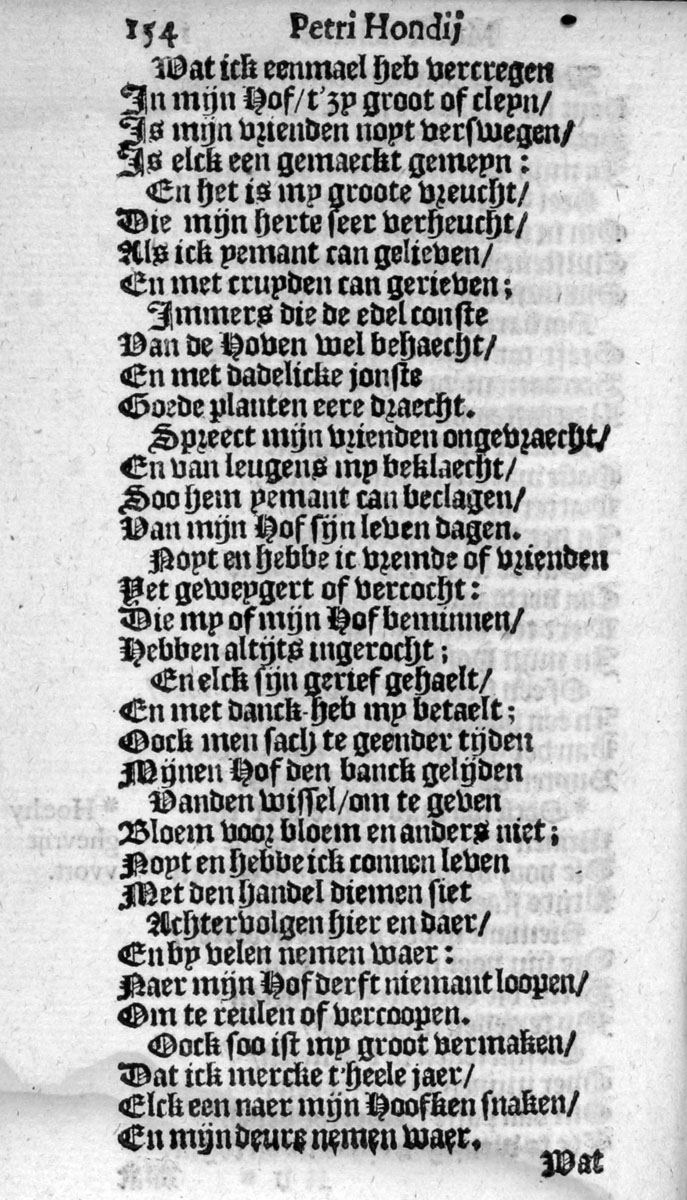 154 Petri Hondij
Wat ick eenmael heb vercregen
In mijn Hof/t'zy groot of cleyn/
Is mijn vrienden noyt verswegen/
Is elck een gemaeckt gemeyn:
En het is my groote vreucht/
Die mijn herte seer verheucht/
Als ick yemant can gelieven/
En met cruyden can gerieven;
Immers die de edel conste
Van de Hoven wel behaecht/
En met dadelicke jonste
Goede planten eere draecht.
Spreect mijn vrienden ongevraecht/
En van leugens my beklaecht/
Soo hem yemant can beclagen/
Van mijn Hof sijn leven dagen.
Noyt en hebbe ic vremde of vrienden
Yet geweygert of vercocht:
Die my of mijn Hof beminnen/
Hebben altijts ingerocht;
En elck sijn gerief gehaelt/
En met danck heb my betaelt;
Oock men sach te geender tijden
Mijnen Hof den banck gelijden
Vanden wissel/om te geven
Bloem voor bloem en anders niet;
Noyt en hebbe ick connen leven
Met den handel diemen siet
Achtervolgen hier en daer/
En by velen nemen waer:
Naer mijn Hof derft niemant loopen/
Om te reulen of vercoopen.
Oock soo ist my groot vermaken/
Dat ick mercke t'heele jaer/
Elck een naer mijn Hoofken snaken/
En mijn deurs nemen waer.
Wat